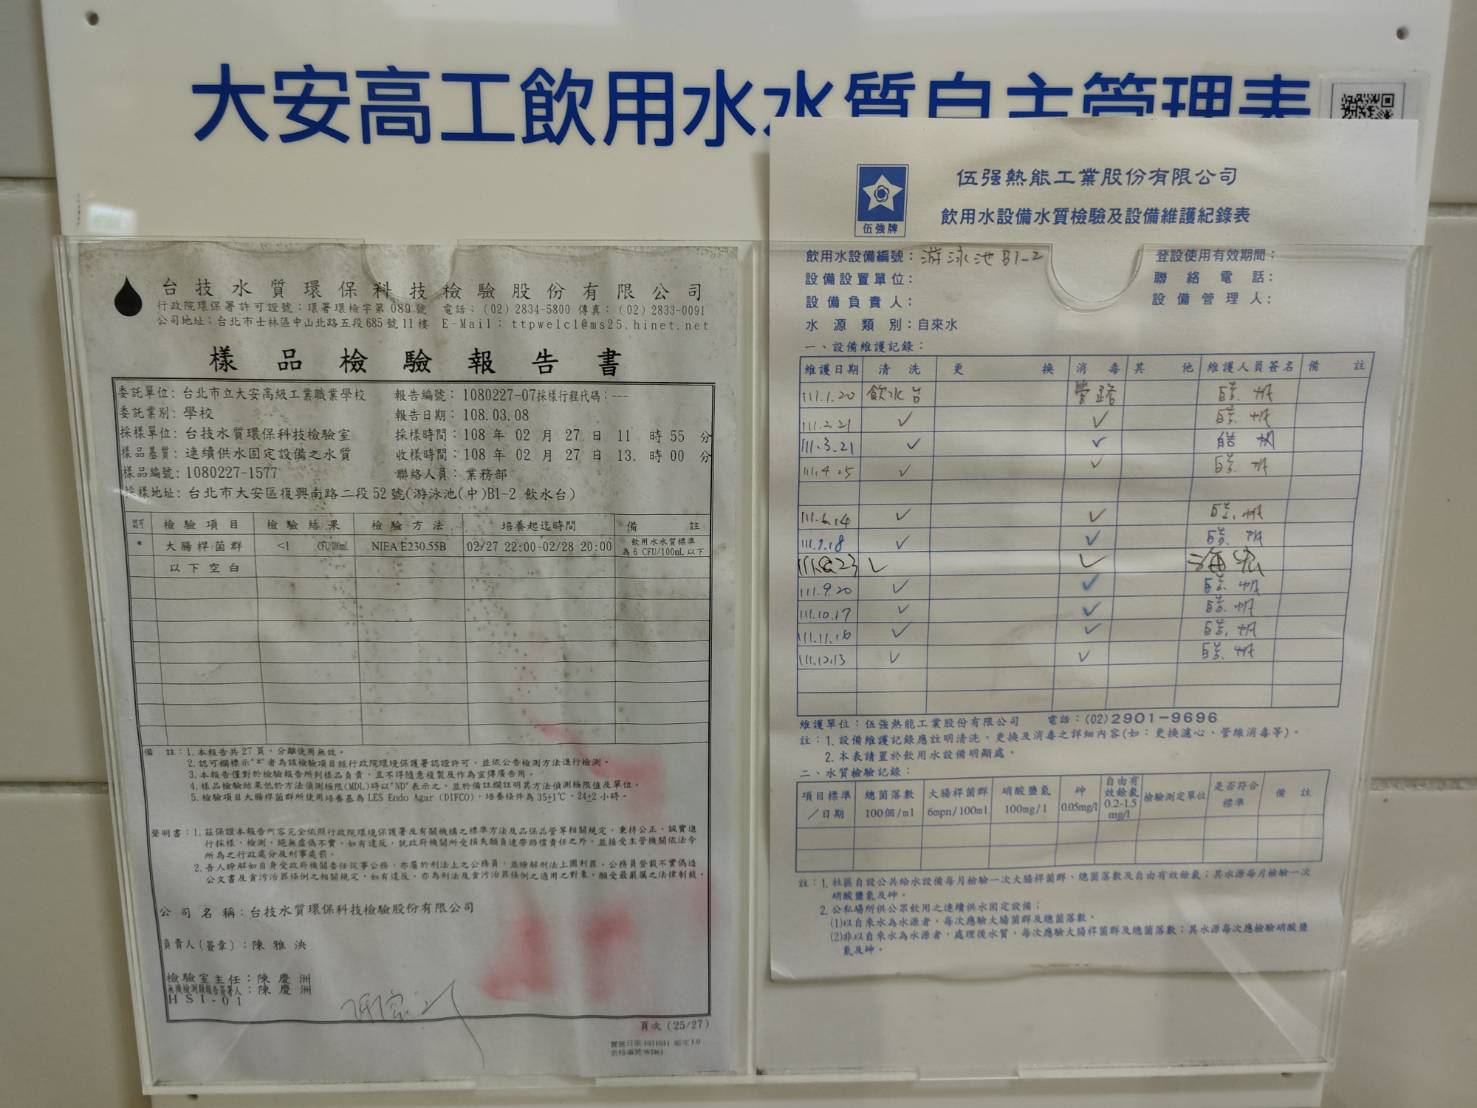 大安高工飲用水水質自主管理表
台技水質環保科技檢驗股份有限公司
行政院環保署許可證號：環署環檢字第 089 號 電話：(02) 2834-5800 傳真：(02) 2833-0091
公司地址：台北市士林區中山北路五段685號11樓 E-Mail：ttpwelcl@ms25.hinet.net
樣品檢驗報告書
委託單位：台北市立大安高級工業職業學校 報告編號：1080227-07採樣行程代碼：---
委託業別：學校 報告日期：108.03.08
採樣單位：台技水質環保科技檢驗室 採樣時間：108 年 02 月 27 日 11 時 55 分
樣品基質：連續供水固定設備之水質 收樣時間：108 年 02 月 27 日 13 時 00 分
樣品編號：1080227-1577 聯絡人員：業務部
採樣地址：台北市大安區復興南路二段52號(游泳池(中)B1-2 飲水台)
認可 檢驗項目 檢驗結果 檢驗方法 培養起迄時間 備註
* 大腸桿菌群 <1 CFU/100mL NIEA E230.55B 02/27 22:00-02/28 20:00 飲用水水質標準為 6 CFU/100mL 以下
以下空白
備註：1.本報告共27頁，分離使用無效。
2.認可欄標示"*"者為該檢驗項目經行政院環境保護署認證許可，並依公告檢測方法進行檢測。
3.本報告僅對於檢驗報告所列樣品負責，且不得隨意複製及作為宣傳廣告用。
4.樣品檢驗結果低於方法偵測極限(MDL)時以"ND"表示之，並於備註欄註明其方法偵測極限值及單位。
5.檢驗項目大腸桿菌群所使用培養基為 LES Endo Agar (DIFCO)，培養條件為 35±1℃，24±2 小時。
聲明書：1.茲保證本報告內容完全依照行政院環境保護署及有關機構之標準方法及品保品管等相關規定，秉持公正、誠實進
行採樣、檢測。絕無虛偽不實，如有違反，就政府機關所受損失願負連帶賠償責任之外，並接受主管機關依法令
所為之行政處分及刑事處罰。
2.吾人瞭解如自身受政府機關委任從事公務，亦屬於刑法上之公務員，並瞭解刑法上圖利罪、公務員登載不實偽造
公文書及貪污治罪條例之相關規定，如有違反，亦為刑法及貪污治罪條例之適用之對象，願受最嚴厲之法律制裁。
公司名稱：台技水質環保科技檢驗股份有限公司
負責人(簽章)：陳雅泱
檢驗室主任：陳慶洲
無機檢測類報告簽署人：陳慶洲
HSI-01
頁次 (25/27)
伍强熱能工業股份有限公司
伍強牌
飲用水設備水質檢驗及設備維護紀錄表
飲用水設備編號：游泳池B1-2 登設使用有效期間：
設備設置單位： 聯絡電話：
設備負責人： 設備管理人：
水源類別：自來水
一、設備維護記錄：
維護日期 清洗 更換 消毒 其他 維護人員簽名 備註
111.1.20 飲水台 管路
111.2.21 ✓ ✓
111.3.21 ✓ ✓
111.4.25 ✓ ✓
111.6.14 ✓ ✓
111.7.18 ✓ ✓
111.8.23 ✓ ✓
111.9.20 ✓ ✓
111.10.17 ✓ ✓
111.11.16 ✓ ✓
111.12.13 ✓ ✓
維護單位：伍强熱能工業股份有限公司 電話：(02)2901-9696
註：1.設備維護記錄應註明清洗、更換及消毒之詳細內容(如：更換濾心、管線消毒等)。
2.本表請置於飲用水設備明顯處。
二、水質檢驗記錄：
項目標準／日期 總菌落數 100個/ml 大腸桿菌群 6mpn/100ml 硝酸鹽氮 100mg/l 砷 0.05mg/l 自由有效餘氯 0.2-1.5 mg/l 檢驗測定單位 是否符合標準 備註
註：1.社區自設公共給水設備每月檢驗一次大腸桿菌群、總菌落數及自由有效餘氯；其水源每月檢驗一次
硝酸鹽氮及砷。
2.公私場所供公眾飲用之連續供水固定設備：
(1)以自來水為水源者，每次應驗大腸桿菌群及總菌落數。
(2)非以自來水為水源者，處理後水質，每次應驗大腸桿菌群及總菌落數；其水源每次應檢驗硝酸鹽
氮及砷。